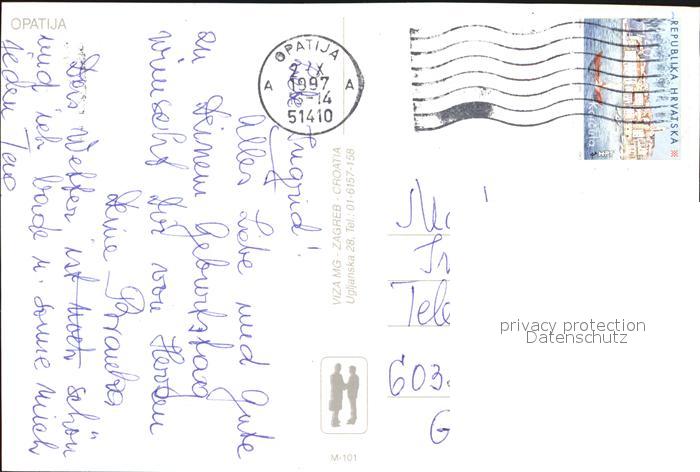 OPATIJA
Liebe Ingrid!
Alles Liebe und Gute
zu Deinem Geburtstag
wünscht Dir von Herzen
Deine
Das Wetter ist noch schön
und ich bade u. sonne mich
jeden Tag
OPATIJA
1997
14
A A
51410
VIZA MG - ZAGREB - CROATIA
Ugljanska 28, Tel.: 01-6157-158
M-101
REPUBLIKA HRVATSKA
Tele
603
G
privacy protection
Datenschutz